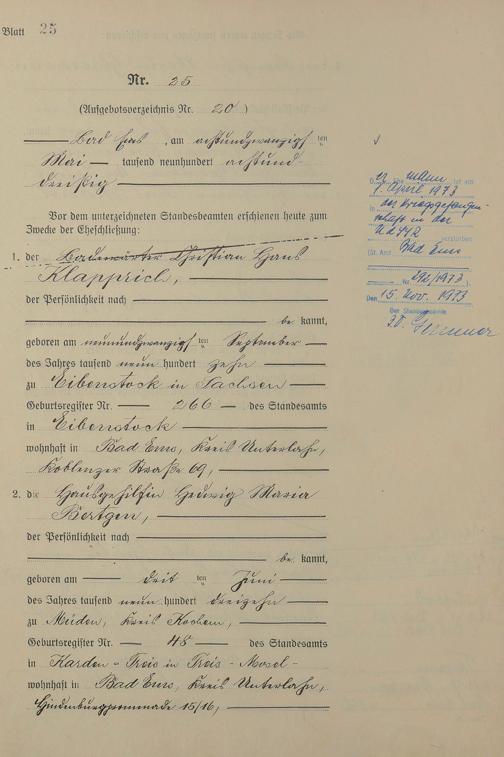 Blatt 25
Nr. 25
(Aufgebotsverzeichnis Nr. 20)
Bad Ems, am achtundzwanzigsten
Mai tausend neunhundert achtund-
dreißig
Vor dem unterzeichneten Standesbeamten erschienen heute zum
Zwecke der Eheschließung:
1. der Badewärter Christian Hans
Klapprich,
der Persönlichkeit nach
be kannt,
geboren am neunundzwanzigsten September
des Jahres tausend neun hundert zehn
zu Eibenstock in Sachsen
Geburtsregister Nr. 266 des Standesamts
in Eibenstock
wohnhaft in Bad Ems, Kreis Unterlahn,
Koblenzer Straße 69,
2. die Hausgehilfin Hedwig Maria
Bertgen,
der Persönlichkeit nach
be kannt,
geboren am dritten Juni
des Jahres tausend neun hundert dreizehn
zu Müden, Kreis Kochem,
Geburtsregister Nr. 48 des Standesamts
in Karden-Treis in Treis-Mosel-
wohnhaft in Bad Ems, Kreis Unterlahn,
Hindenburgpromenade 15/16,
Ehemann ist am
1. April 1973
in der Kriegsgefangen-
schaft in der
verstorben
(St. Amt Bad Ems
Nr. 292/1973)
Den 15. Nov. 1973
Der Standesbeamte